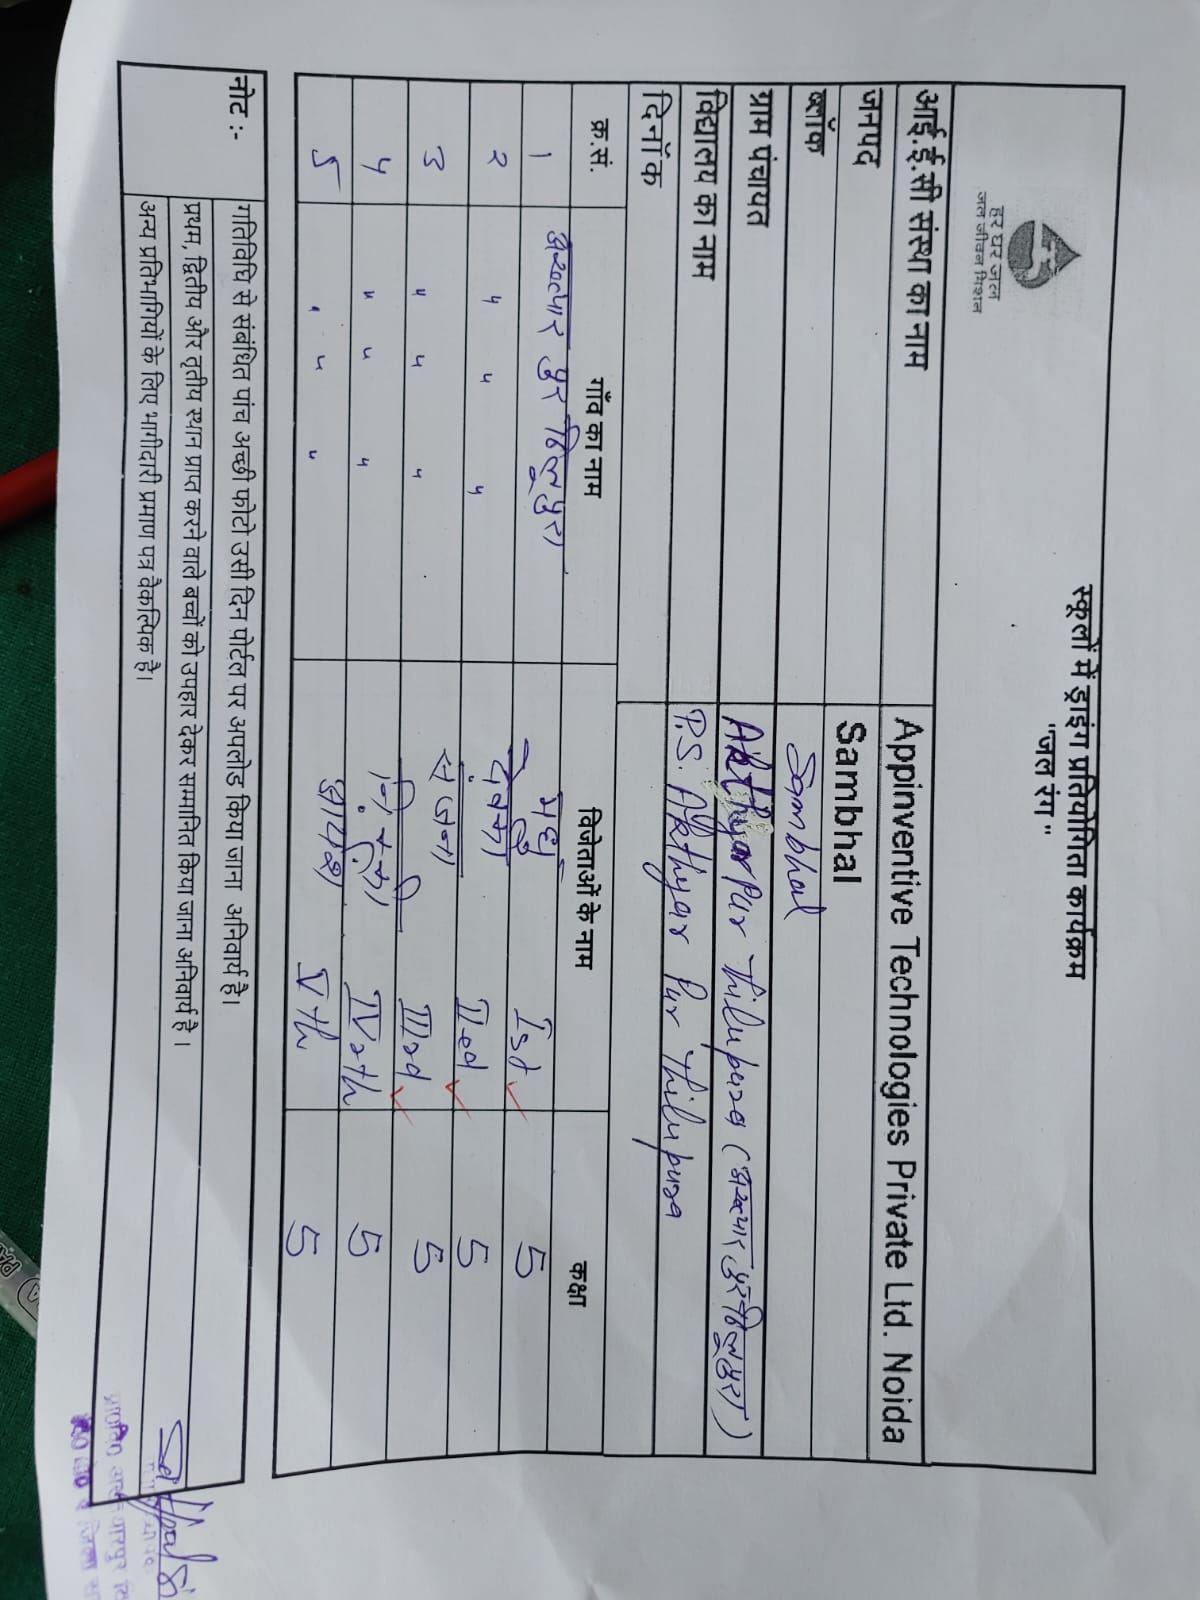 स्कूलों में ड्राइंग प्रतियोगिता कार्यक्रम
"जल रंग"
हर घर जल
जल जीवन मिशन
आई.ई.सी संस्था का नाम Appinventive Technologies Private Ltd. Noida
जनपद Sambhal
ब्लॉक Sambhal
ग्राम पंचायत Akthyar Pur Thilupura (अख्त्यार पुर ठिलूपुरा)
विद्यालय का नाम P.S. Akthyar Pur Thilupura
दिनाँक
क्र.सं. गाँव का नाम विजेताओं के नाम कक्षा
1 अख्त्यार पुर ठिलूपुरा मधु Ist ✓ 5
२ " " " IInd ✓ 5
3 " " " संजना IIIrd ✓ 5
4 " " " IVrth 5
5 " " " Vth 5
नोट :- गतिविधि से संबंधित पांच अच्छी फोटो उसी दिन पोर्टल पर अपलोड किया जाना अनिवार्य है।
प्रथम, द्वितीय और तृतीय स्थान प्राप्त करने वाले बच्चों को उपहार देकर सम्मानित किया जाना अनिवार्य है।
अन्य प्रतिभागियों के लिए भागीदारी प्रमाण पत्र वैकल्पिक है।